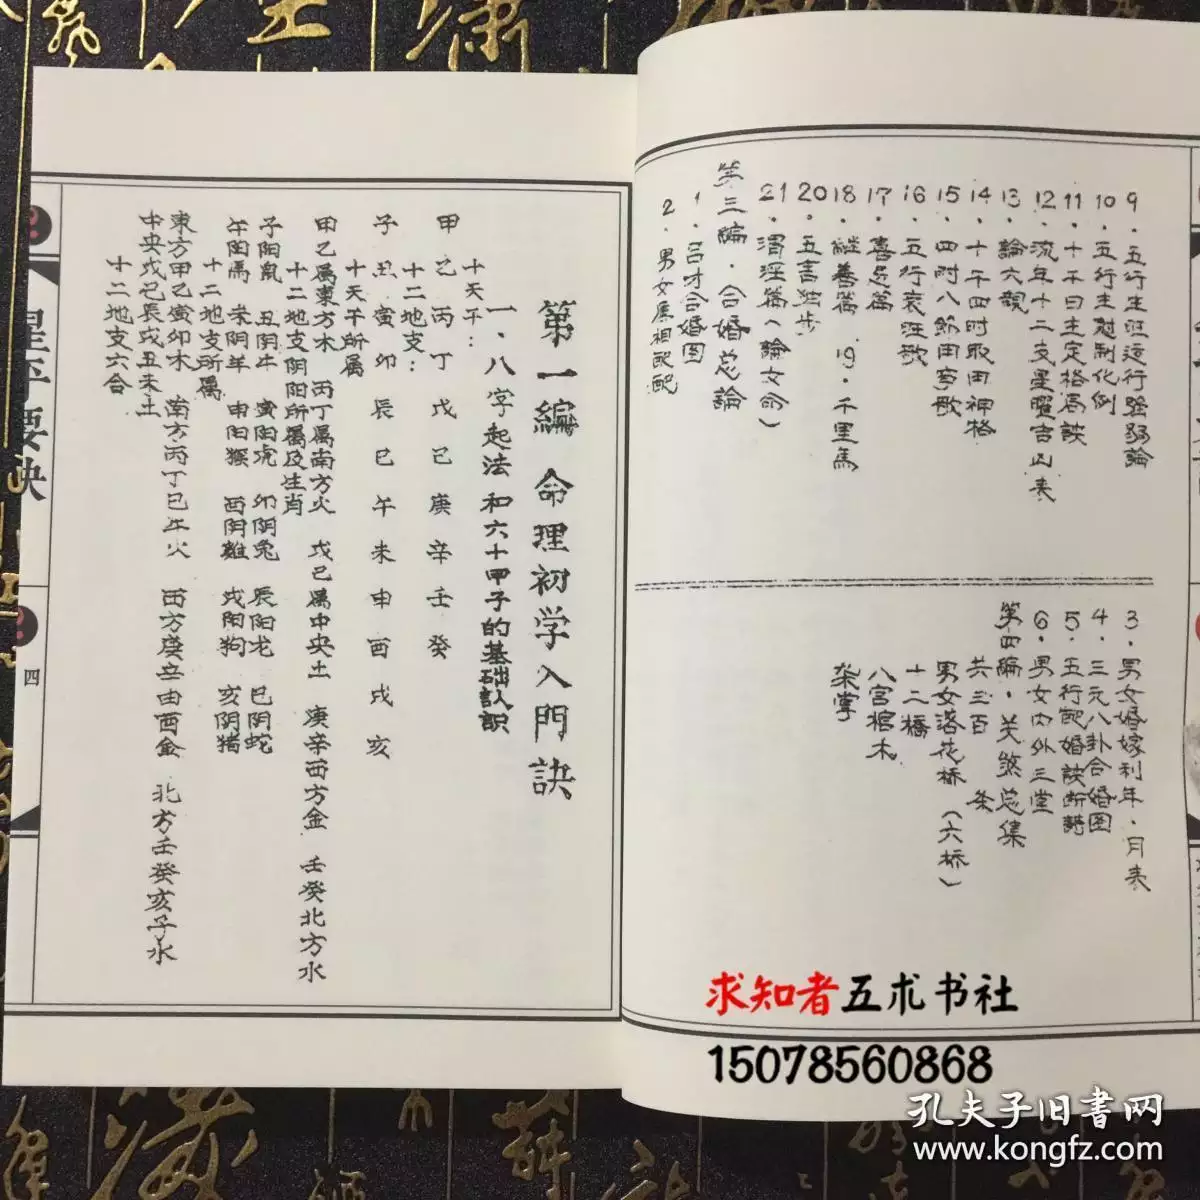 9．五行生旺运行强弱論
10．五行生尅制化例
11．十干日主定格局訣
12．流年十二支星曜吉凶表
13．論六親
14．十干四时取用神格
15．四时八節用事歌
16．五行衰旺歌
17．喜忌篇
18．继善篇 19．千里馬
20．五言独步
21．渭泾篇（論女命）
第三編．合婚总論
1．吕才合婚图
2．男女属相配配
3．男女婚嫁利年．月表
4．三元八卦合婚图
5．五行配婚訣断诗
6．男女内外三堂
第四編．关煞总集
共三百 条
男女洛花桥（六桥）
十二橋
八宫棺木
第一編 命理初学入門訣
一．八字起法和六十甲子的基础认识
十天干：
甲乙丙丁戊己庚辛壬癸
十二地支：
子丑寅卯辰巳午未申酉戌亥
十天干所属
甲乙属東方木 丙丁属南方火 戊己属中央土 庚辛西方金 壬癸北方水
十二地支阴阳所属及生肖
子阳鼠 丑阴牛 寅阳虎 卯阴兔 辰阳龙 巳阴蛇
午阳馬 未阴羊 申阳猴 酉阴雞 戌阳狗 亥阴猪
十二地支所属
東方甲乙寅卯木 南方丙丁巳午火 西方庚辛申酉金 北方壬癸亥子水
中央戊己辰戌丑未土
十二地支六合
星平要诀
四
求知者五术书社
15078560868
孔夫子旧書网
www.kongfz.com